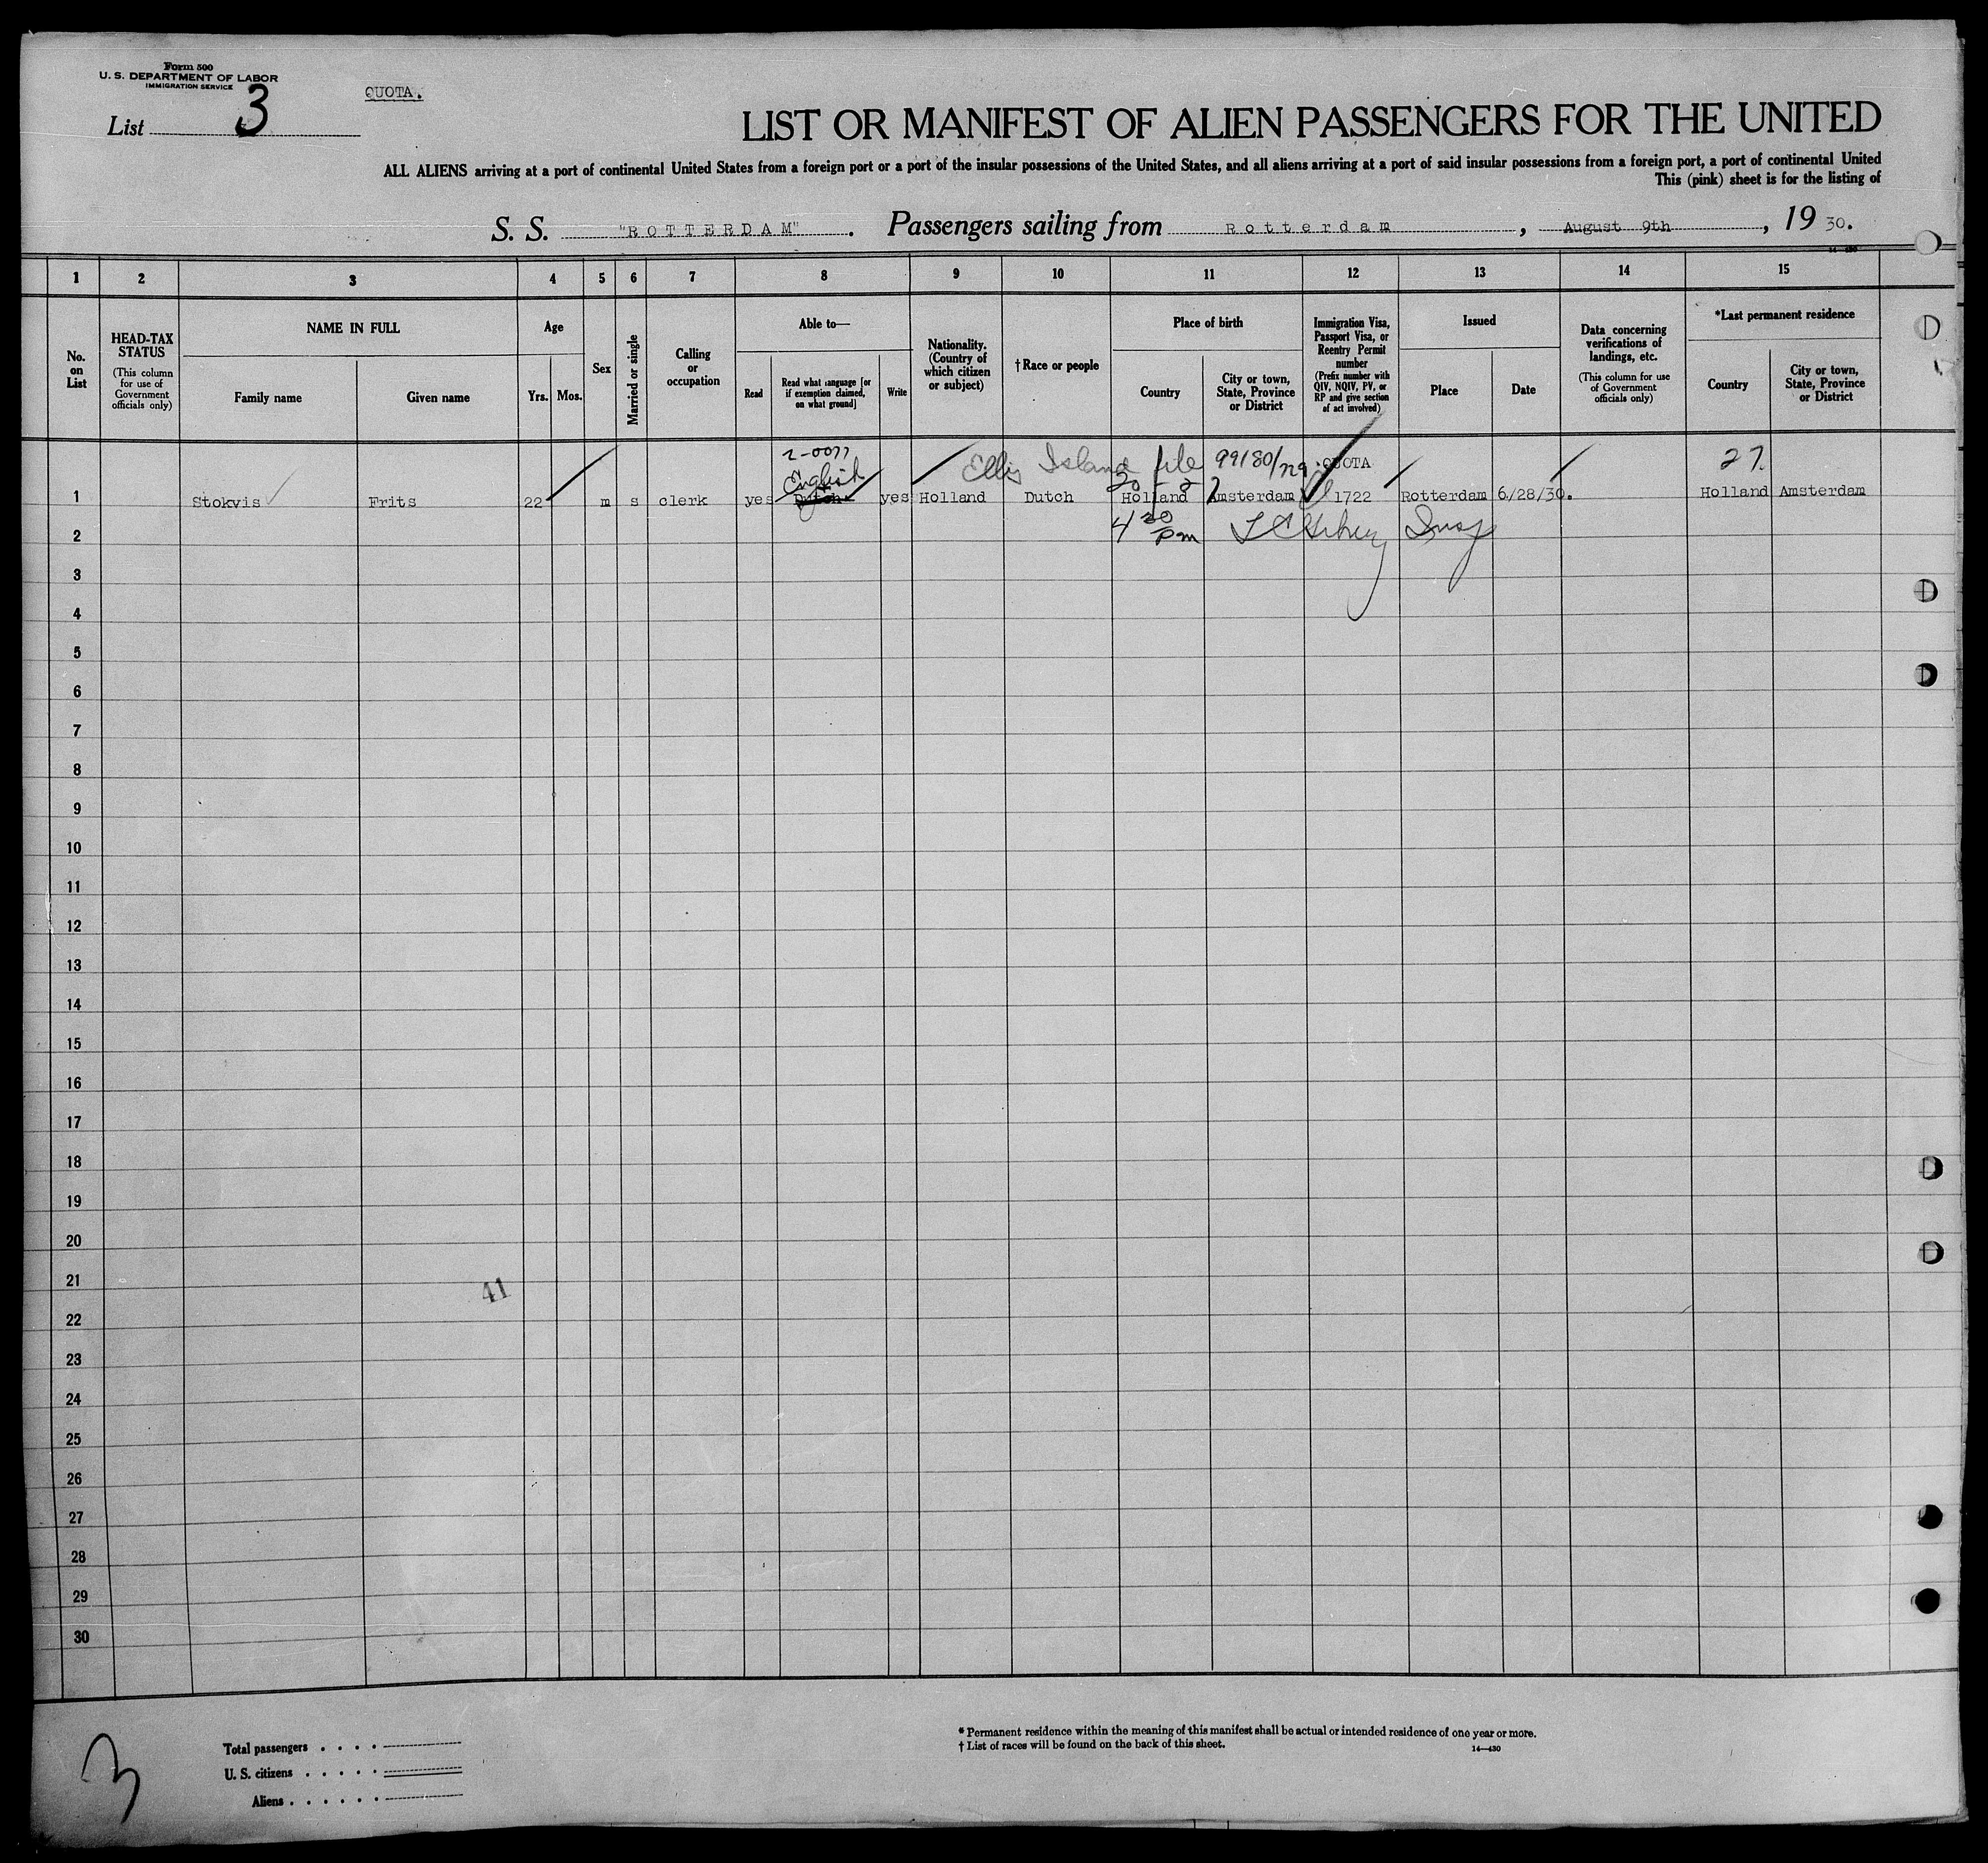 Form 500
U. S. DEPARTMENT OF LABOR
IMMIGRATION SERVICE
QUOTA.
List 3
LIST OR MANIFEST OF ALIEN PASSENGERS FOR THE UNITED
ALL ALIENS arriving at a port of continental United States from a foreign port or a port of the insular possessions of the United States, and all aliens arriving at a port of said insular possessions from a foreign port, a port of continental United
This (pink) sheet is for the listing of
S. S. "ROTTERDAM". Passengers sailing from Rotterdam, August 9th, 19 30.
1 2 3 4 5 6 7 8 9 10 11 12 13 14 15
No. on List
HEAD-TAX STATUS
(This column for use of Government officials only)
NAME IN FULL
Family name
Given name
Age
Yrs.
Mos.
Sex
Married or single
Calling or occupation
Able to—
Read
Read what language [or if exemption claimed, on what ground]
Write
Nationality. (Country of which citizen or subject)
† Race or people
Place of birth
Country
City or town, State, Province or District
Immigration Visa, Passport Visa, or Reentry Permit number
(Prefix number with QIV, NQIV, PV, or RP and give section of act involved)
Issued
Place
Date
Data concerning verifications of landings, etc.
(This column for use of Government officials only)
*Last permanent residence
Country
City or town, State, Province or District
2-0077
English
Ellis Island file 99180/729
QUOTA
27
1 Stokvis Frits 22 m s clerk yes Dutch yes Holland Dutch Holland Amsterdam 1722 Rotterdam 6/28/30. Holland Amsterdam
4 30 pm
Insp
2
3
4
5
6
7
8
9
10
11
12
13
14
15
16
17
18
19
20
21
41
22
23
24
25
26
27
28
29
30
3
Total passengers . . . .
U. S. citizens . . . . .
Aliens . . . . . .
* Permanent residence within the meaning of this manifest shall be actual or intended residence of one year or more.
† List of races will be found on the back of this sheet.
14—430